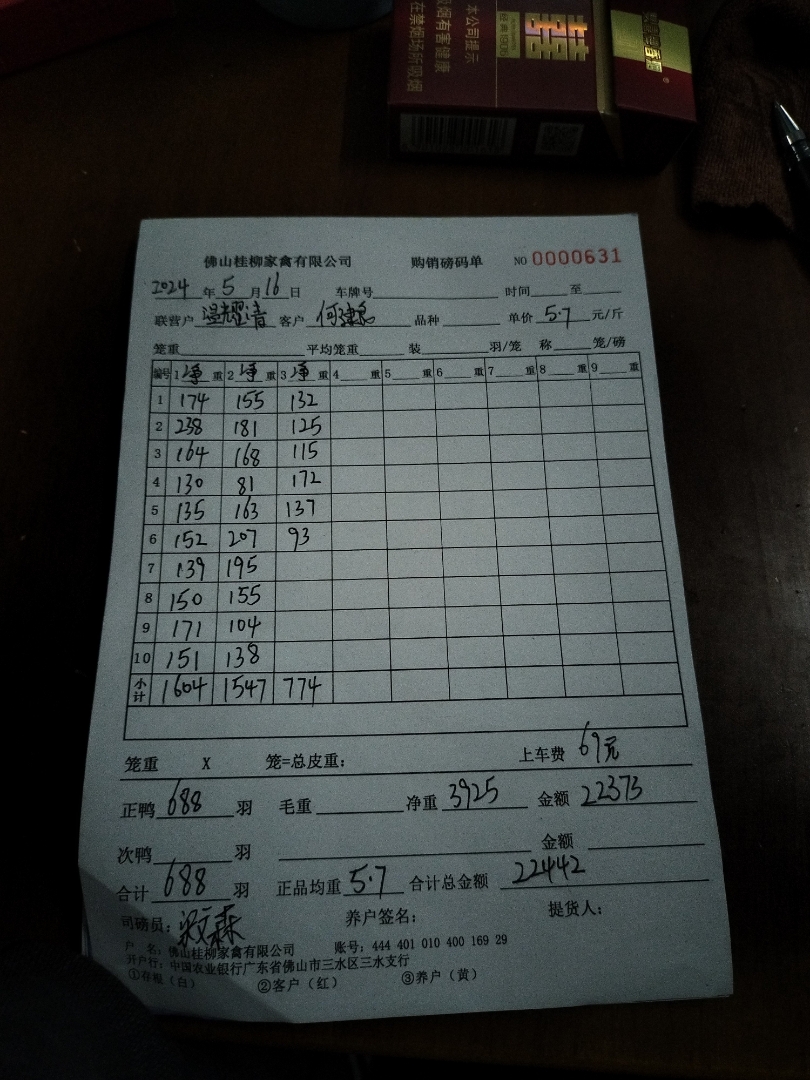 本公司提示
吸烟有害健康
在禁烟场所吸烟
囍
佛山桂柳家禽有限公司 购销磅码单 NO 0000631
2024 年 5 月 16 日 车牌号 时间 至
联营户 温耀清 客户 品种 单价 5.7 元/斤
笼重 平均笼重 装 羽/笼 称 笼/磅
编号 1 净 重 2 净 重 3 净 重 4 重 5 重 6 重 7 重 8 重 9 重
1 174 155 132
2 238 181 125
3 164 168 115
4 130 81 172
5 135 163 137
6 152 207 93
7 139 195
8 150 155
9 171 104
10 151 138
小计 1604 1547 774
笼重 X 笼=总皮重: 上车费 69元
正鸭 688 羽 毛重 净重 3925 金额 22373
次鸭 羽 金额
合计 688 羽 正品均重 5.7 合计总金额 22442
司磅员: 养户签名: 提货人:
户 名: 佛山桂柳家禽有限公司 账号: 444 401 010 400 169 29
开户行: 中国农业银行广东省佛山市三水区三水支行
①存根(白) ②客户(红) ③养户(黄)